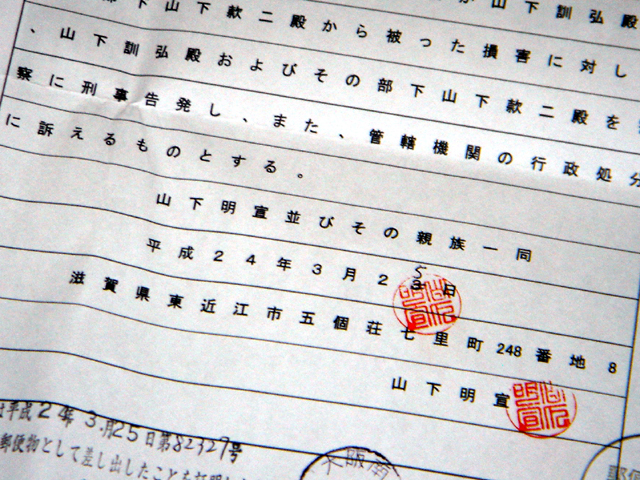 下山下款二殿から被った損害に対し
、山下訓弘殿およびその部下山下款二殿を
察に刑事告発し、また、管轄機関の行政処分
に訴えるものとする。
山下明宣並びその親族一同
平成24年3月25日
滋賀県東近江市五個荘七里町248番地8
山下明宣
平成24年3月25日第82327号
郵便物として差し出したことを証明し
大阪南
郵便